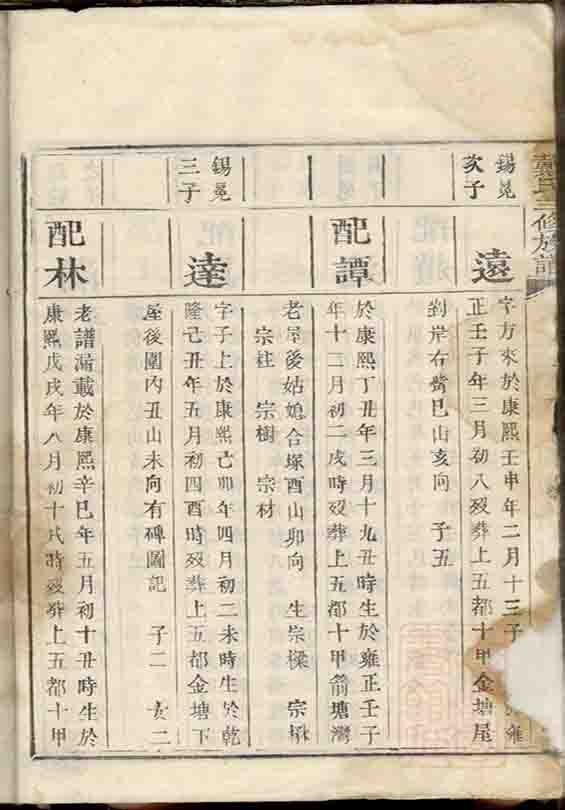 戴氏三修族譜
錫冕
次子
遠
字方來於康熙壬申年二月十三子雍
正壬子年三月初八歿葬上五都十甲金塘尾
對岸右嘴巳山亥向 子五
配譚
於康熙丁丑年三月十九丑時生於雍正壬子
年十二月初二戌時歿葬上五都十甲箭塘灣
老屋後姑媳合塚酉山卯向 生宗樑 宗楸
宗柱 宗樹 宗材
錫冕
三子
達
字子上於康熙己卯年四月初二未時生於乾
隆己丑年五月初四酉時歿葬上五都金塘下
屋後園內丑山未向有碑圖記 子二 女二
配林
老譜漏載於康熙辛巳年五月初十丑時生於
康熙戊戌年八月初十戌時歿葬上五都十甲